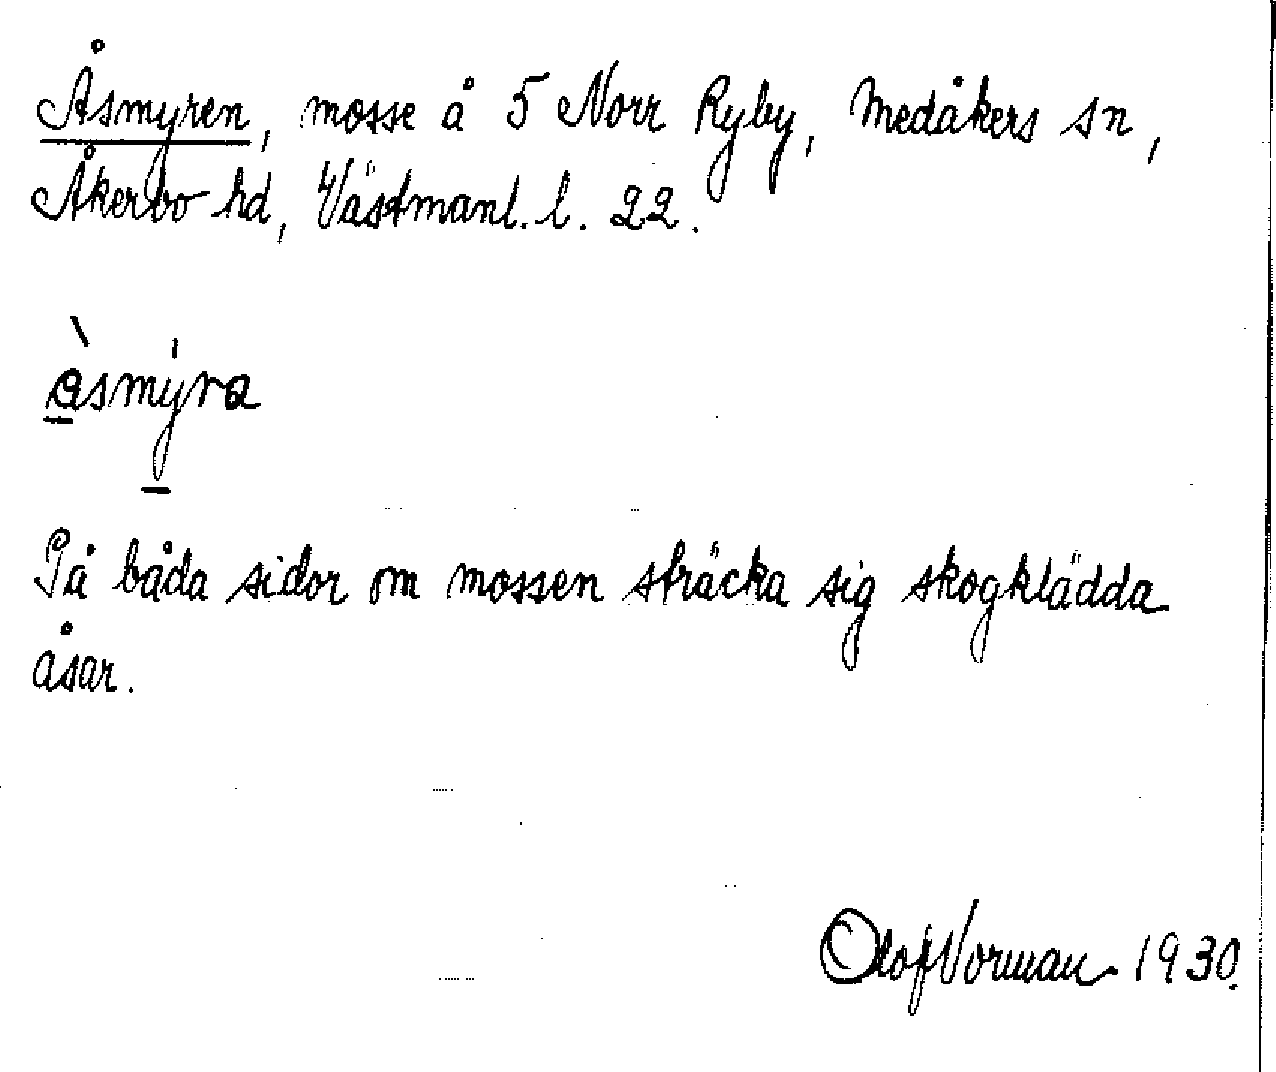 Åsmyren, mosse å 5 Norr Ryby, Medåkers sn,
Åkerbo hd, Västmanl. l. 22.
åsmýra
På båda sidor om mossen sträcka sig skogklädda
åsar.
Olof Norman 1930.